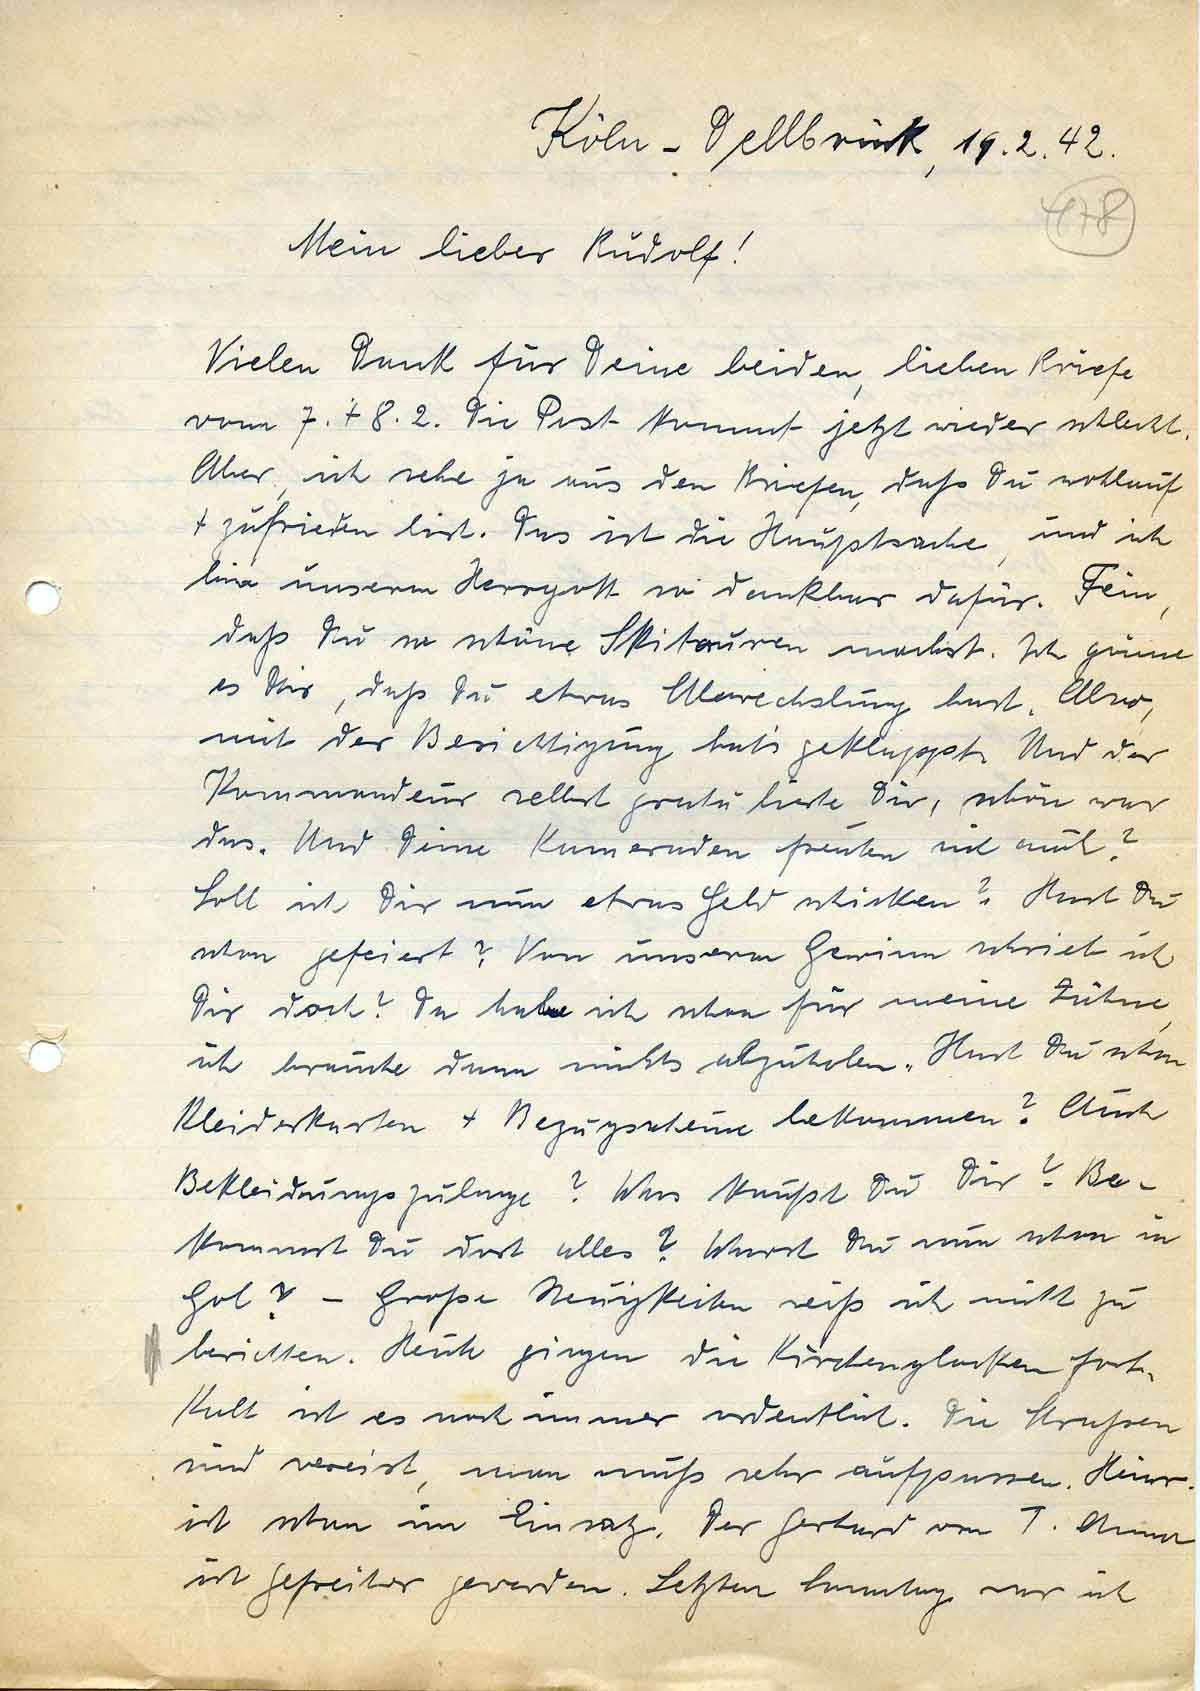 Köln - Dellbrück, 19.2.42.
478
Mein lieber Rudolf!
Vielen Dank für Deine beiden, lieben Briefe
vom 7. + 8.2. Die Post kommt jetzt wieder schlecht.
Aber, ich sehe ja aus den Briefen, daß Du wohlauf
+ zufrieden bist. Das ist die Hauptsache, und ich
bin unserm Herrgott so dankbar dafür. Fein,
daß Du so schöne Skitouren machst. Ich gönne
es Dir, daß Du etwas Abwechslung hast. Also,
mit der Besichtigung hat's geklappt. Und der
Kommandeur selbst gratulierte Dir, schön war
das. Und Deine Kameraden freuten sich auch?
Soll ich Dir nun etwas Geld schicken? Hast Du
schon gefeiert? Von unserm Gewinn schrieb ich
Dir doch? Da habe ich schon für meine Zähne,
ich brauche dann nichts abzuholen. Hast Du schon
Kleiderkarten + Bezugscheine bekommen? Auch
Bekleidungszulage? Was kaufst Du Dir? Be-
kommst Du dort alles? Warst Du nun schon in
Gol? - Große Neuigkeiten weiß ich nicht zu
berichten. Heute gingen die Kirchenglocken fort.
Kalt ist es noch immer ordentlich. Die Straßen
sind vereist, man muß sehr aufpassen. Heinr.
ist schon im Einsatz. Der Gerhard von T. Anna
ist Gefreiter geworden. Letzten Sonntag war ich